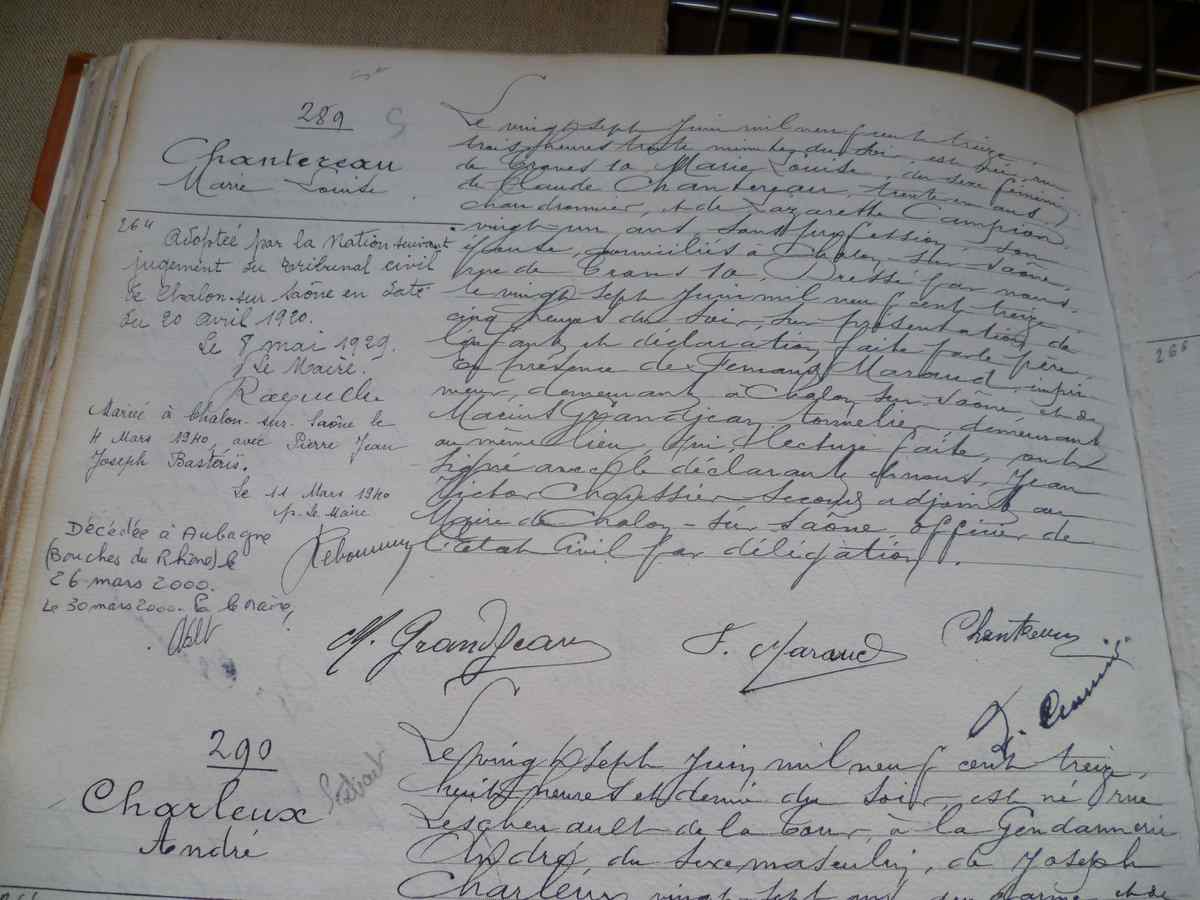 289
Chantereau
Marie Louise
Le vingt sept Juin mil neuf cent treize,
trois heures trente minutes du soir, est née, rue
de Traves 10, Marie Louise, du sexe féminin,
de Claude Chantereau, trente un ans,
chaudronnier, et de Lazarethe Campion,
vingt-un ans, sans profession, son
épouse, domiciliés à Chalon-sur-Saône,
rue de Trans 10. Dressé par nous,
le vingt sept Juin mil neuf cent treize,
cinq heures du soir, sur présentation de
l'enfant et déclaration faite par le père.
En présence de Fernand Maraud, impri
meur, demeurant à Chalon-sur-Saône, et de
Marius Grandjean, tonnelier, demeurant
au même lieu, qui, lecture faite, ont
signé avec le déclarant et nous, Jean
Victor Chaussier second adjoint au
Maire de Chalon-sur-Saône, officier de
l'Etat Civil par délégation.
264
Adoptée par la Nation suivant
jugement du Tribunal civil
de Chalon-sur-Saône en date
du 20 avril 1920.
Le 8 mai 1929.
Le Maire.
Mariée à Chalon-sur-Saône le
4 Mars 1940, avec Pierre Jean
Joseph Bastéris.
Le 11 Mars 1940
p. Le Maire
Décédée à Aubagne
(Bouches du Rhône) le
26 mars 2000.
Le 30 mars 2000.
M. Grandjean
F. Maraud
Chantereau
290
Charleux
André
Le vingt sept Juin mil neuf cent treize,
huit heures et demie du soir, est né rue
Leschenault de la Tour, à la Gendarmerie
André, du sexe masculin, de Joseph
Charleux vingt-sept ans, gendarme et de
266